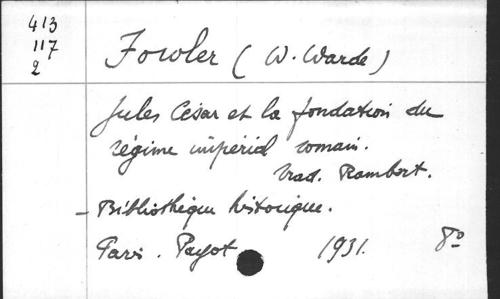 413
117
2
Fowler (W. Warde)
Jules César et la fondation du
régime impérial romain.
Trad. Rambert.
- Bibliothèque historique.
Paris. Payot 1931. 8°